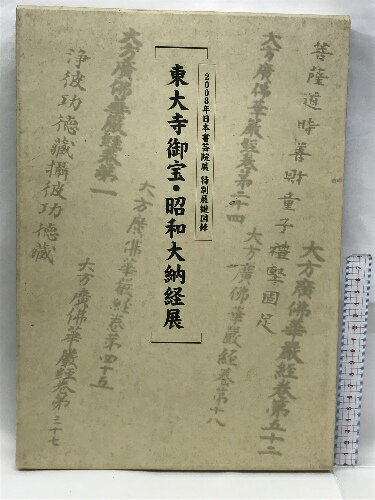 菩薩道時善財童子禮堅固足
大方廣佛華嚴経卷第五十二
大方廣佛華嚴経卷第二十四
大方廣佛華嚴経卷第十八
2008年日本書芸院展 特別展観図録
東大寺御宝・昭和大納経展
大方廣佛華嚴経卷第一
大方廣佛華嚴経卷第四十五
大方廣佛華嚴経卷第三十七
浄彼功徳藏攝彼功徳藏